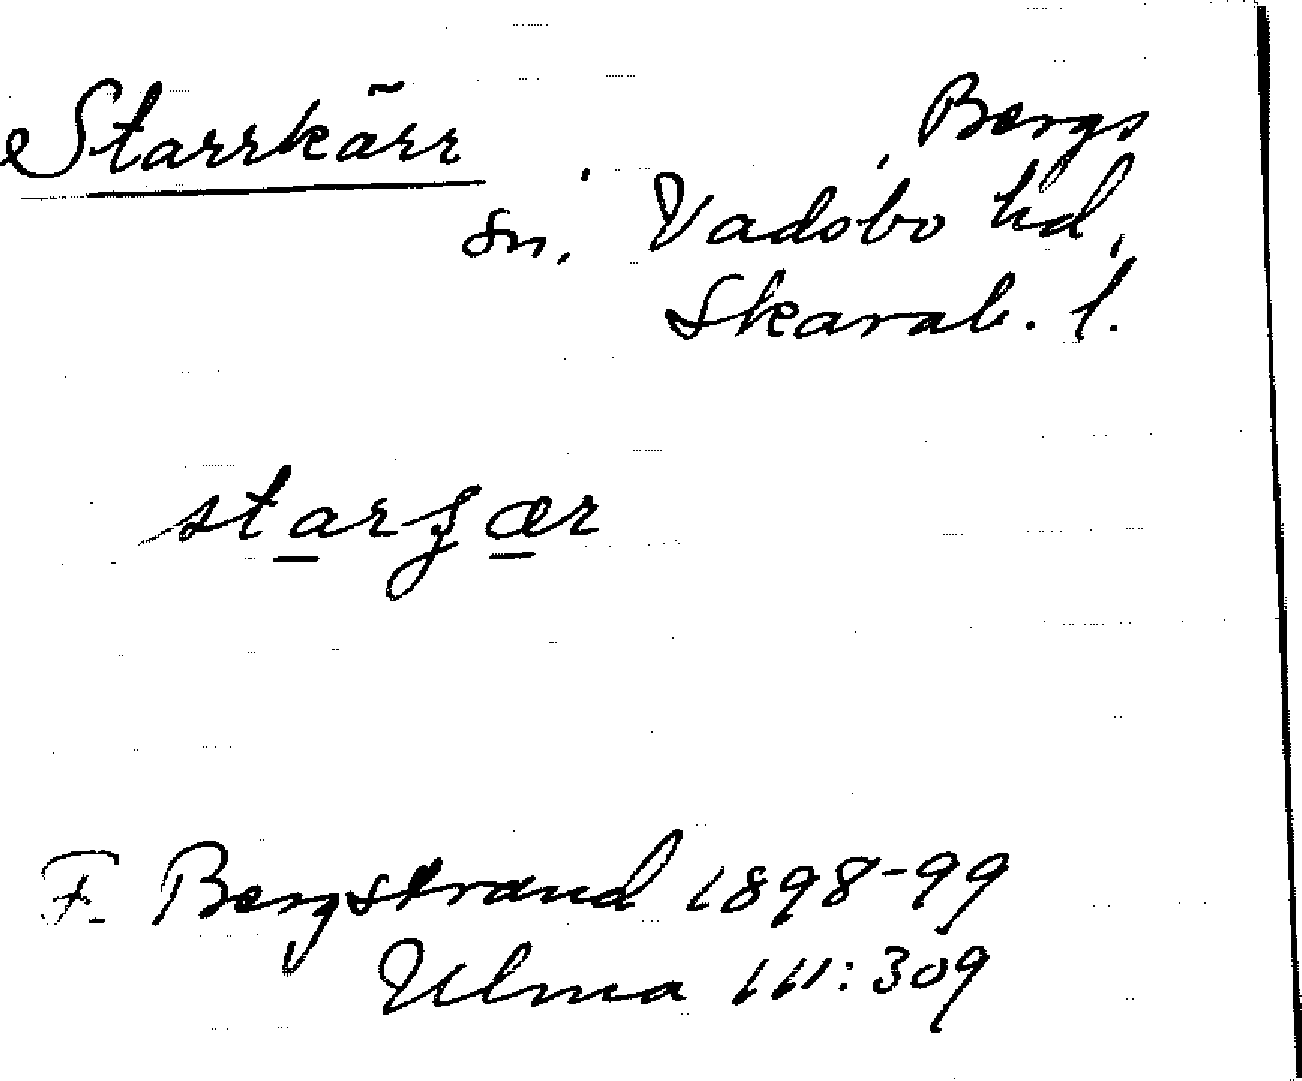 Starrkärr
Bergs
sn. Vadsbo hd,
Skarab. l.
F. Bergstrand 1898-99
Ulma 111:309